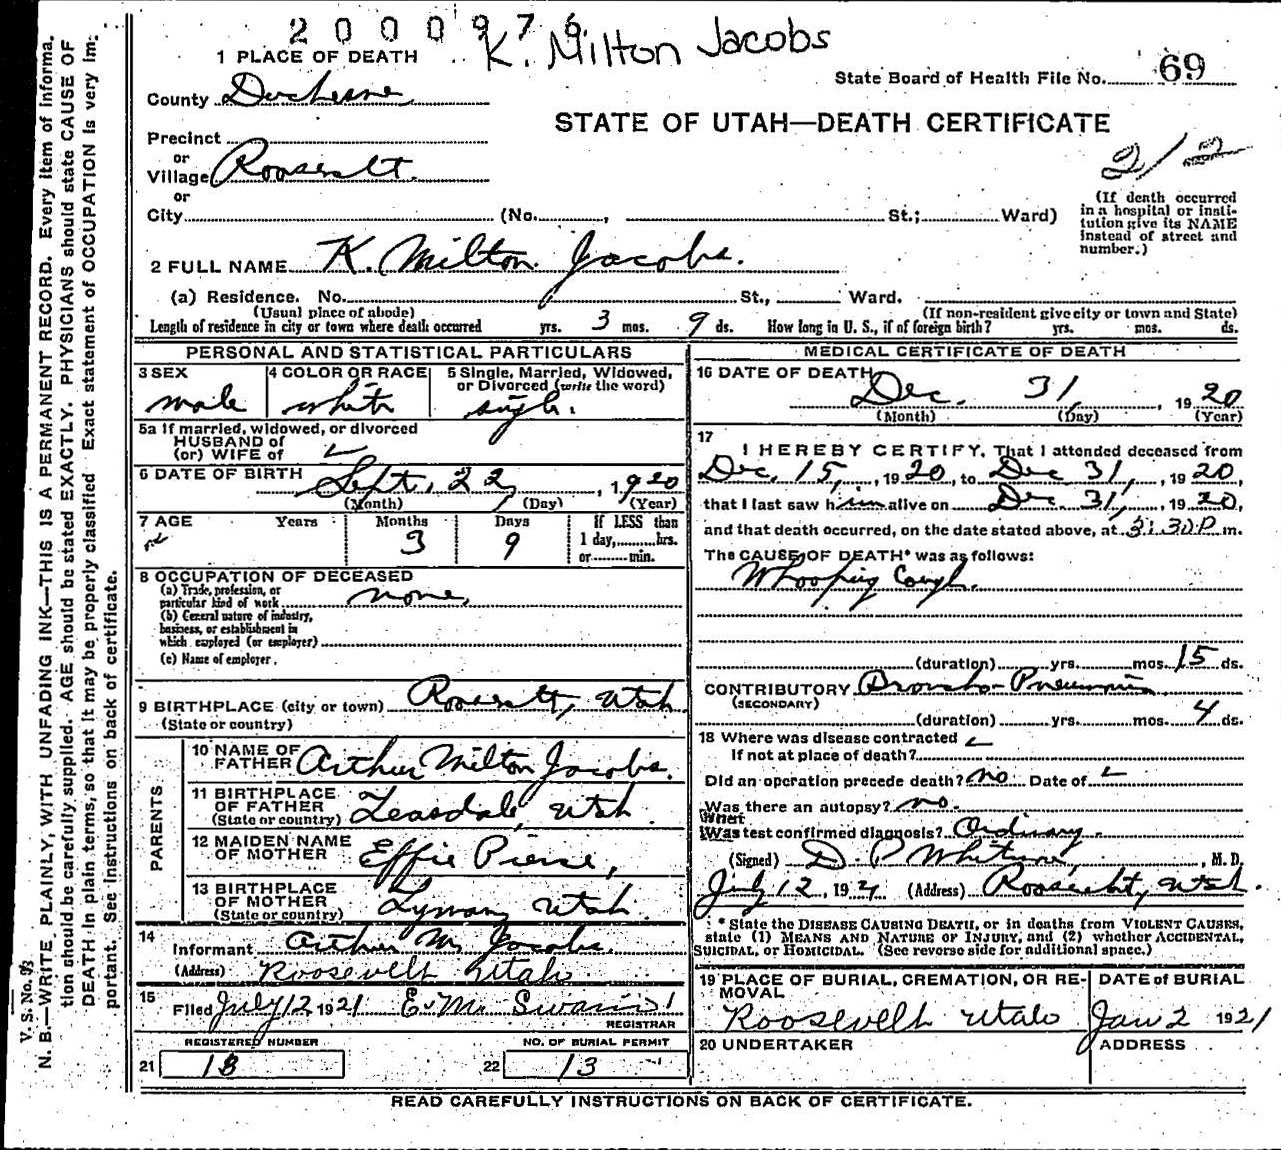 2000976
K. Milton Jacobs
1 PLACE OF DEATH
State Board of Health File No. 69
County Duchesne
STATE OF UTAH—DEATH CERTIFICATE
212
Precinct
or
Village Roosevelt.
or
City (No. , St.; Ward)
(If death occurred in a hospital or insti-
tution give its NAME
instead of street and
number.)
2 FULL NAME K. Milton Jacobs.
(a) Residence. No. St., Ward.
(Usual place of abode) (If non-resident give city or town and State)
Length of residence in city or town where death occurred yrs. 3 mos. 9 ds. How long in U. S., if of foreign birth? yrs. mos. ds.
PERSONAL AND STATISTICAL PARTICULARS
3 SEX 4 COLOR OR RACE 5 Single, Married, Widowed,
or Divorced (write the word)
male white single.
5a If married, widowed, or divorced
HUSBAND of
(or) WIFE of
6 DATE OF BIRTH Sept. 22, 1920
(Month) (Day) (Year)
7 AGE Years Months Days If LESS than
1 day, hrs.
or min.
3 9
8 OCCUPATION OF DECEASED
(a) Trade, profession, or
particular kind of work none,
(b) General nature of industry,
business, or establishment in
which employed (or employer)
(c) Name of employer.
9 BIRTHPLACE (city or town) Roosevelt, Utah
(State or country)
PARENTS
10 NAME OF
FATHER Arthur Milton Jacobs.
11 BIRTHPLACE
OF FATHER
(State or country) Teasdale, Utah.
12 MAIDEN NAME
OF MOTHER Effie Pierse,
13 BIRTHPLACE
OF MOTHER
(State or country) Lyman, Utah.
14 Informant Arthur M. Jacobs.
(Address) Roosevelt Utah.
15 Filed July 12 1921 E. M. Swain
REGISTRAR
REGISTERED NUMBER NO. OF BURIAL PERMIT
21 18 22 13
MEDICAL CERTIFICATE OF DEATH
16 DATE OF DEATH
Dec. 31, 1920
(Month) (Day) (Year)
17
I HEREBY CERTIFY, That I attended deceased from
Dec. 15, 1920, to Dec 31, 1920,
that I last saw him alive on Dec. 31, 1920,
and that death occurred, on the date stated above, at 3:30P m.
The CAUSE OF DEATH* was as follows:
Whooping Cough.
(duration) yrs. mos. 15 ds.
CONTRIBUTORY Broncho-Pneumonia
(SECONDARY)
(duration) yrs. mos. 4 ds.
18 Where was disease contracted
If not at place of death?
Did an operation precede death? no Date of
Was there an autopsy? no.
What
Was test confirmed diagnosis? Ordinary.
(Signed) D. P. Whitmore, M. D.
July 12, 1921 (Address) Roosevelt, Utah.
* State the DISEASE CAUSING DEATH, or in deaths from VIOLENT CAUSES,
state (1) MEANS AND NATURE OF INJURY, and (2) whether ACCIDENTAL,
SUICIDAL, or HOMICIDAL. (See reverse side for additional space.)
19 PLACE OF BURIAL, CREMATION, OR RE-
MOVAL DATE of BURIAL
Roosevelt Utah Jan 2 1921
20 UNDERTAKER ADDRESS
READ CAREFULLY INSTRUCTIONS ON BACK OF CERTIFICATE.
V. S. No. 93
N. B.—WRITE PLAINLY, WITH UNFADING INK—THIS IS A PERMANENT RECORD. Every item of informa-
tion should be carefully supplied. AGE should be stated EXACTLY. PHYSICIANS should state CAUSE OF
DEATH in plain terms, so that it may be properly classified. Exact statement of OCCUPATION is very im-
portant. See instructions on back of certificate.